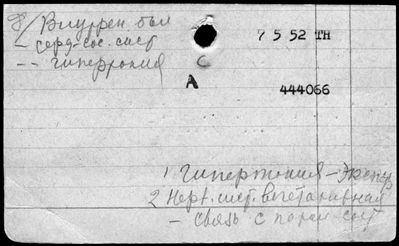 8/ Внутрен. бол
– серд-сос. сист
-- гипертония
7 5 52 TH
C
A
444066
1 гипертония – Экспер
2 Нерв. сист. вегетативная
– связь с псих